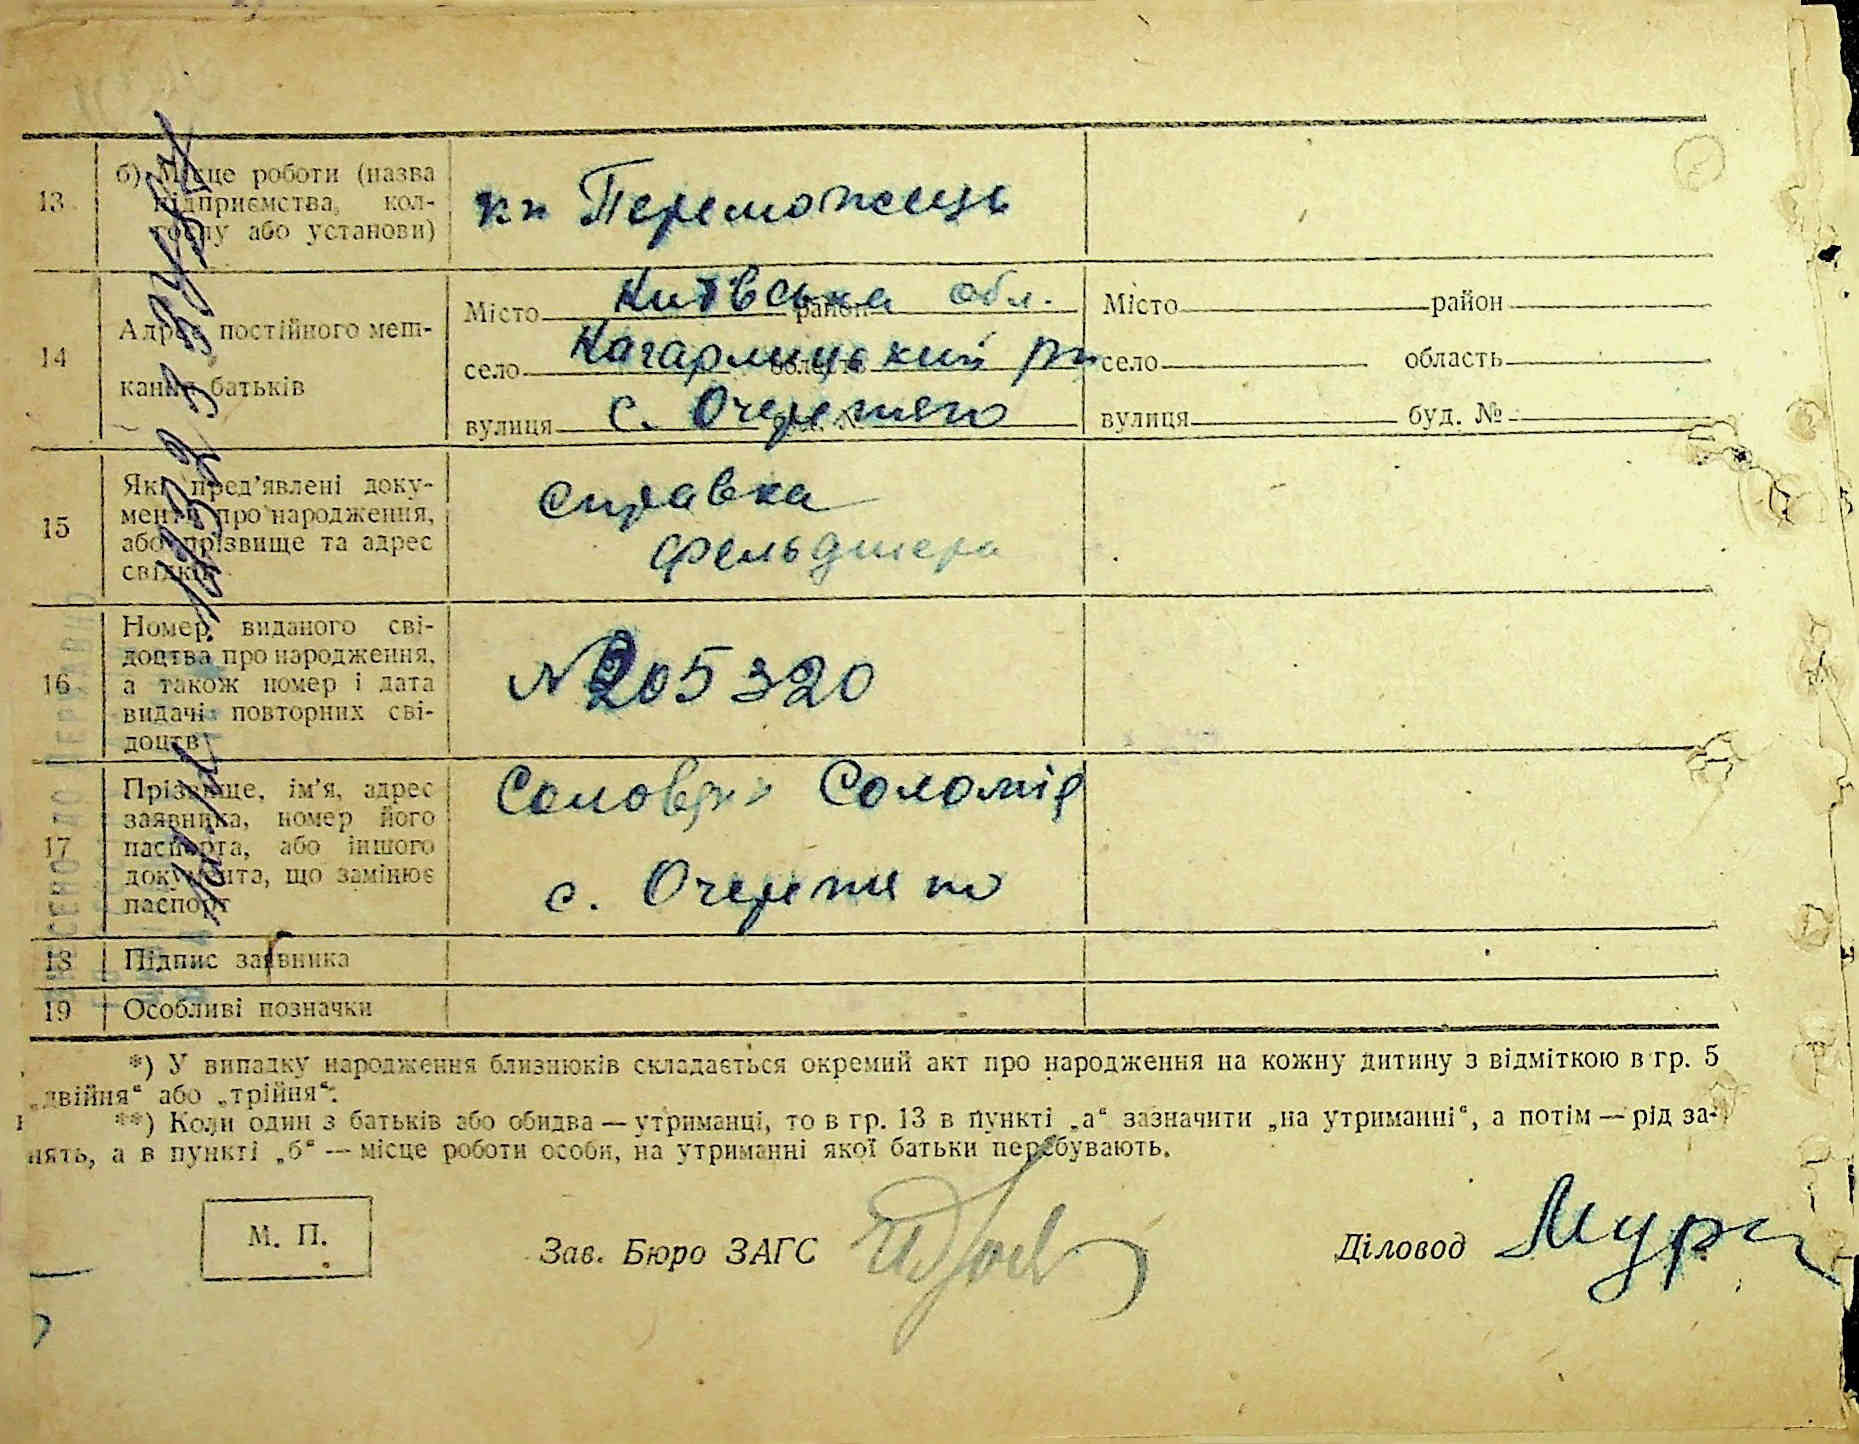 13
б) Місце роботи (назва
підприємства, кол-
госпу або установи)
Переможець
14
Адрес постійного меш-
кання батьків
Місто район
Київська обл.
село область
Кагарлицький рн
вулиця
с. Очеретяно
Місто район
село область
вулиця буд. №
15
Які пред’явлені доку-
менти про народження,
або прізвище та адрес
свідків
справка
фельдшера
16
Номер виданого сві-
доцтва про народження,
а також номер і дата
видачі повторних сві-
доцтв
№ 205320
17
Прізвище, ім’я, адрес
заявника, номер його
паспорта, або іншого
документа, що замінює
паспорт
Соломія
с. Очеретяно
18
Підпис заявника
19
Особливі позначки
*) У випадку народження близнюків складається окремий акт про народження на кожну дитину з відміткою в гр. 5
„двійня“ або „трійня“.
**) Коли один з батьків або обидва — утриманці, то в гр. 13 в пункті „а“ зазначити „на утриманні“, а потім — рід за-
нять, а в пункті „б“ — місце роботи особи, на утриманні якої батьки перебувають.
М. П.
Зав. Бюро ЗАГС
Діловод